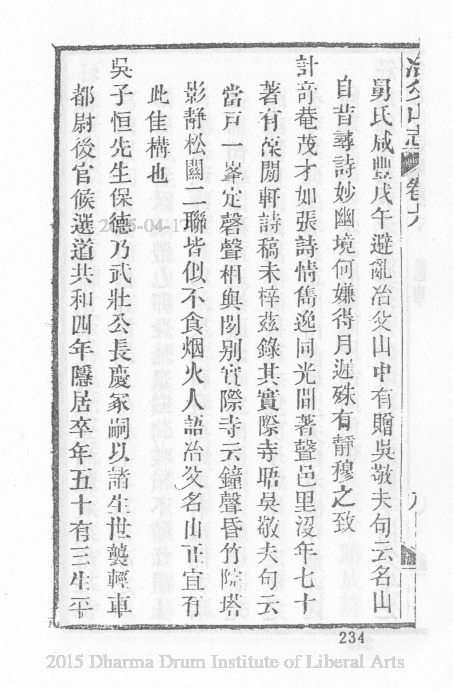 冶父山志 卷六
舅氏咸豐戊午避亂冶父山中有贈吳敬夫句云名山
自昔尋詩妙幽境何嫌得月遲殊有靜穆之致
計奇菴茂才如張詩情雋逸同光間著聲邑里沒年七十
著有葆閒軒詩稿未梓茲錄其實際寺晤吳敬夫句云
當戶一峯定磬聲相與閒別實際寺云鐘聲昏竹院塔
影靜松關二聯皆似不食烟火人語冶父名山正宜有
此佳構也
吳子恒先生保德乃武壯公長慶冢嗣以諸生世襲輕車
都尉後官候選道共和四年隱居卒年五十有三生平
234
2015-04-17
2015 Dharma Drum Institute of Liberal Arts